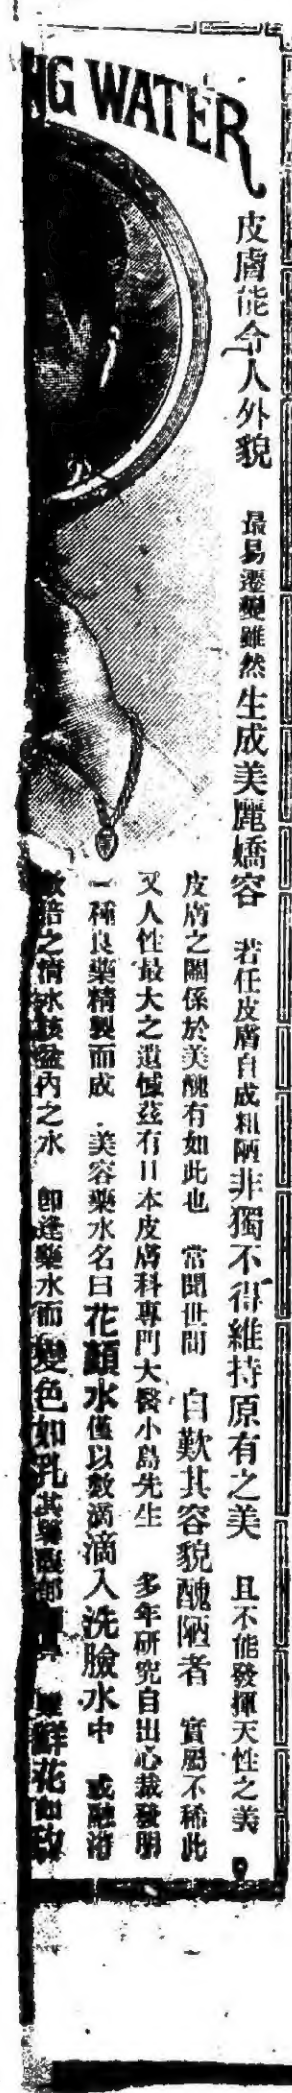 NG WATER
皮膚能令人外貌 最易遷變雖然生成美麗嬌容 若任皮膚自成粗陋非獨不得維持原有之美 且不能發揮天性之美
皮膚之關係於美醜有如此也 常聞世間 自歎其容貌醜陋者 實屬不稀此
又人性最大之遺憾茲有日本皮膚科專門大醫小島先生 多年研究自出心裁發明
一種良藥精製而成 美容藥水名曰花顏水僅以數滴滴入洗臉水中 或融溶
倍之清水該盆內之水 卽逢藥水而變色如乳其 鮮花如